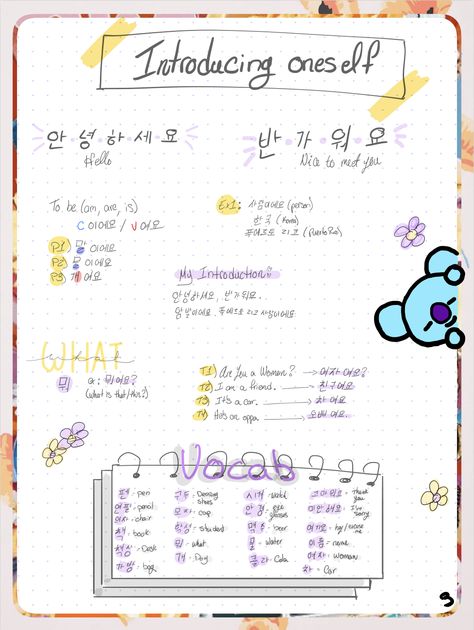 Introducing oneself
안·녕·하·세·요
Hello
반·가·워·요
Nice to meet you
To be (am, are, is)
C 이에요 / V 여요
P1) 말 이에요
P2) 물 이에요
P3) 개 여요
Ex1: 사람이에요 (person)
한국 (Korea)
푸에르토 리코 (Puerto Rico)
My Introduction:
안녕하세요, 반가워요.
푸에르토 리코 사람이에요
WHAT
what
뭐 or: 뭐여요?
(what is that/this?)
T1) Are you a Woman? → 여자여요?
T2) I am a friend. → 친구여요
T3) It's a car. → 차여요
T4) He's an oppa. → 오빠여요.
Vocab
펜 - pen
연필 - pencil
의자 - chair
책 - book
책상 - Desk
가방 - bag
구두 - Dressing shoes
모자 - cap
학생 - student
뭐 - what
개 - Dog
시계 - watch
안경 - eye glasses
맥주 - beer
물 - water
콜라 - Cola
고마워요 - Thank you
미안해요 - I'm sorry
여기요 - hey/excuse me
이름 - name
여자 - woman
차 - Car